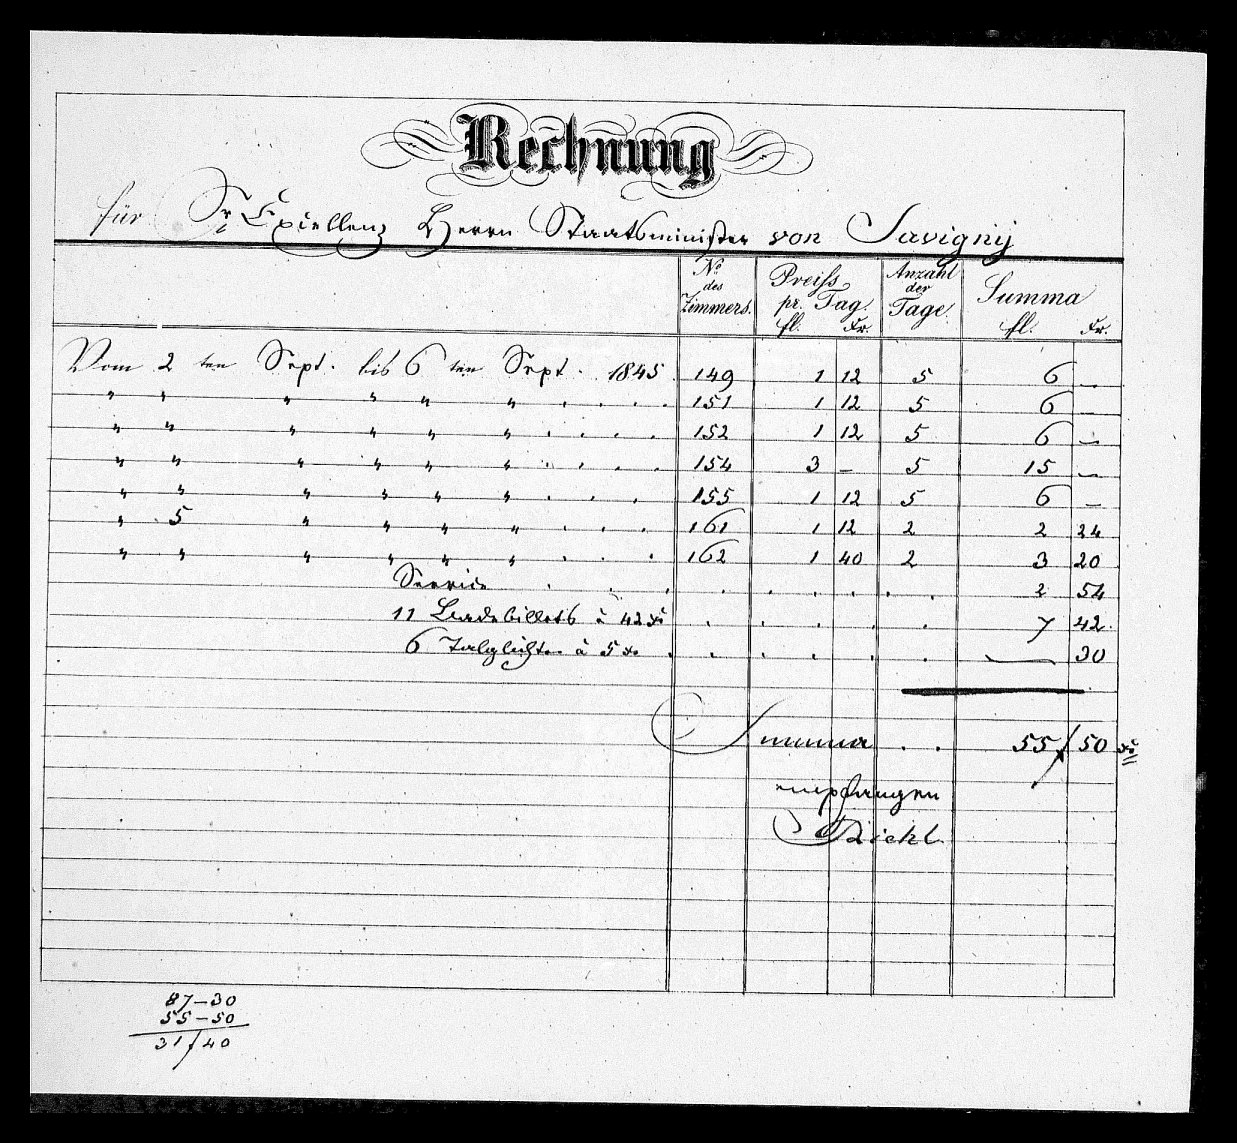 Rechnung
für Sr Excellenz Herrn Staatsminister von Savigny
No des Zimmers. Preiss pr. Tag. fl. Xr. Anzahl der Tage. Summa fl. Xr.
Vom 2 ten Sept. bis 6 ten Sept. 1845 149 1 12 5 6 —
" " " " " " . . . . 151 1 12 5 6 —
" " " " " " . . . . 152 1 12 5 6 —
" " " " " " . . . . 154 3 — 5 15 —
" " " " " " . . . 155 1 12 5 6 —
" 5 " " " " . . . 161 1 12 2 2 24
" " " " " " . . . 162 1 40 2 3 20
Service . . . . . . . . . . 2 54
11 Badebillets à 42 Xr . . . . . 7 42.
6 Talglichter à 5 Xr . . . . . . — 30
Summa . . 55 f 50 Xr
empfangen
Diehl
87 – 30
55 – 50
31 f 40